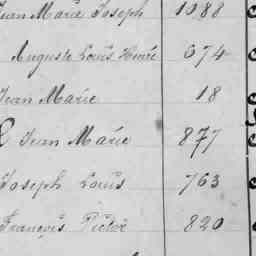 Jean Marie Joseph 1088
Auguste Louis Henri 674
Jean Marie 18
Jean Marie 877
Joseph Louis 763
François Victor 820